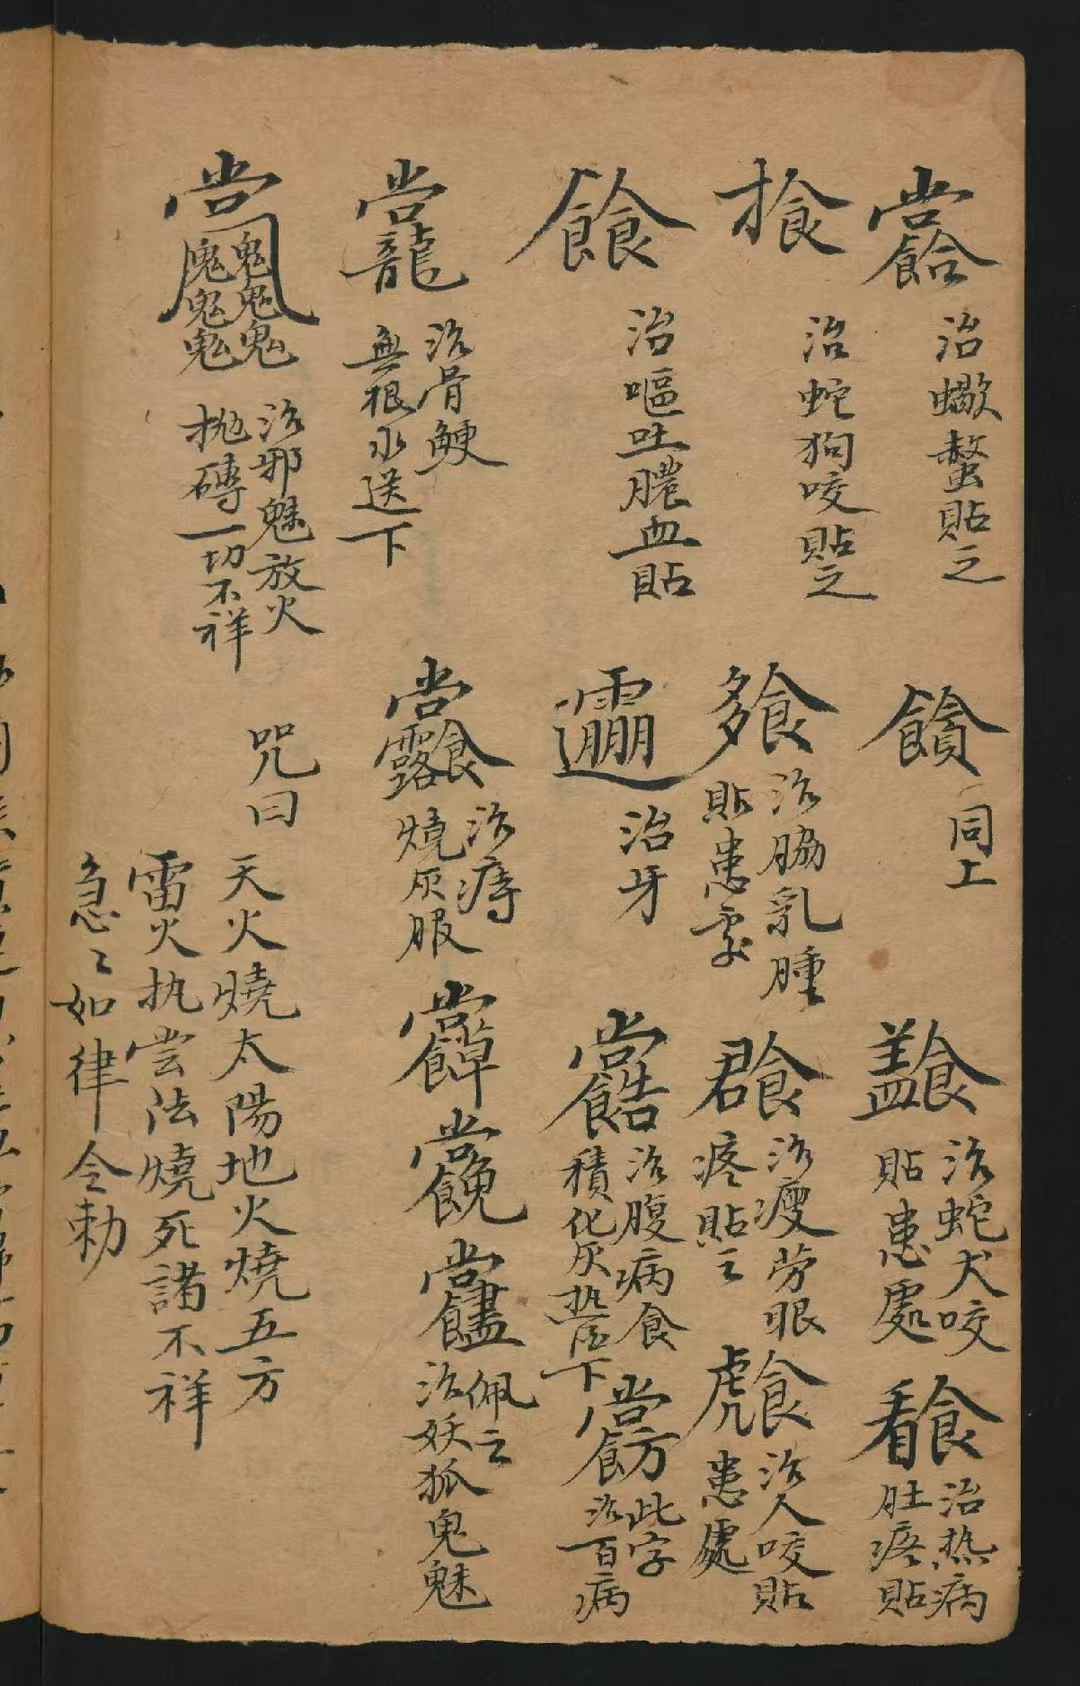 治蠍螫貼之
同上
治蛇犬咬
貼患處
治热病
肚疼貼
治蛇狗咬貼之
治脇乳腫
貼患處
治瘦劳眼
疼貼之
治人咬貼
患處
治嘔吐膿血貼
治牙
治腹病食
積化灰热酒下
此字
治百病
治骨鯁
無根水送下
治痔
燒灰服
佩之
治妖狐鬼魅
治邪魅放火
抛磚一切不祥
咒曰
天火燒太陽地火燒五方
雷火执尝法燒死諸不祥
急〻如律令勅